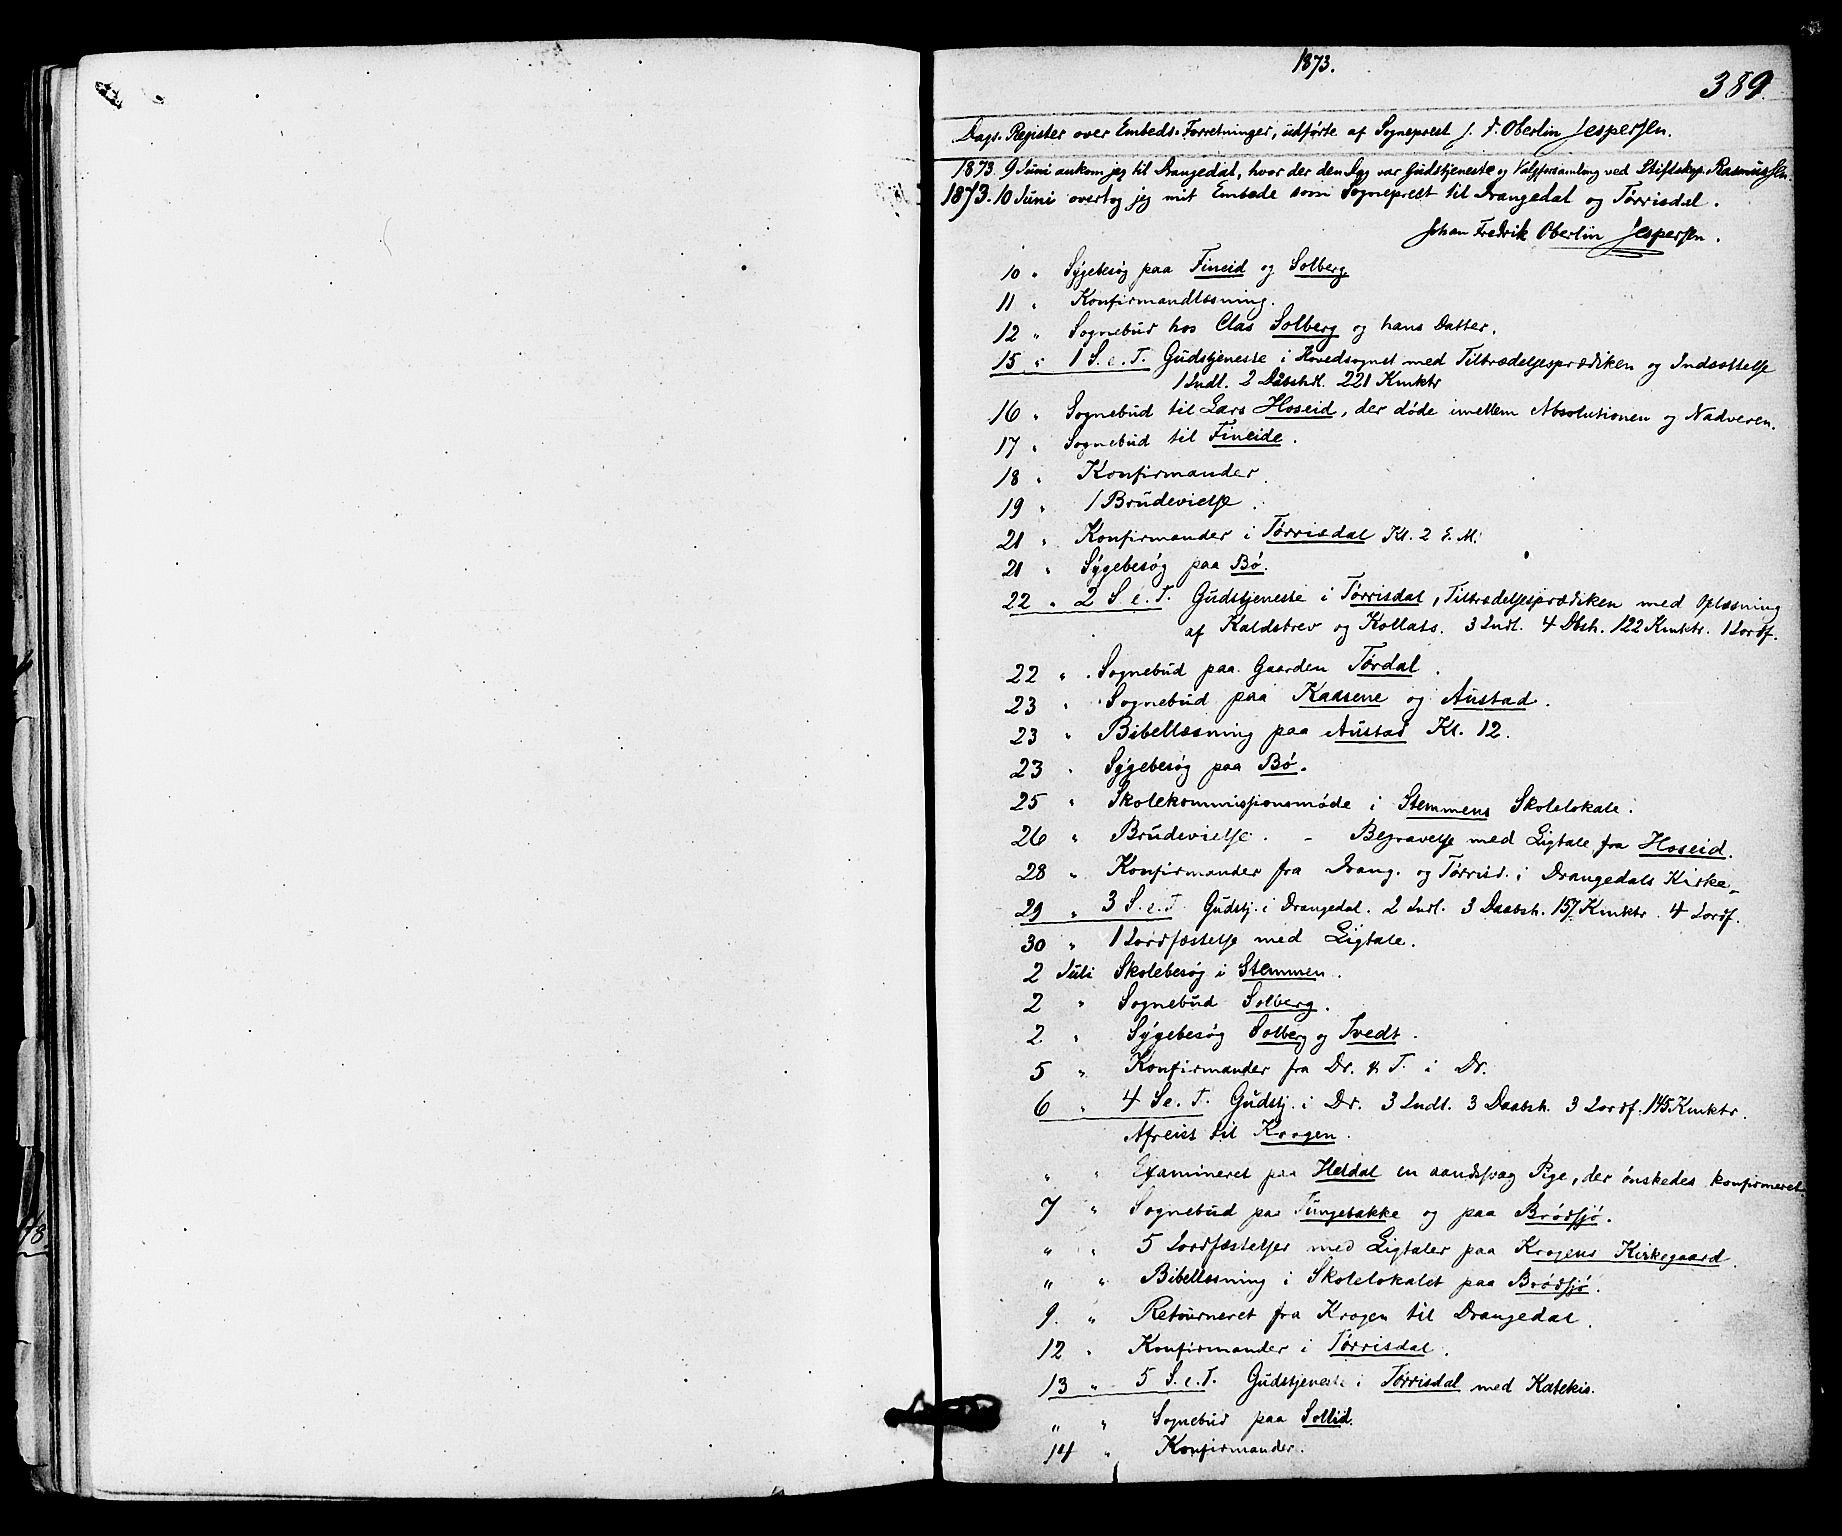 1873.
389.
Dags-Register over Embeds-Forretninger, udførte af Sogneprest J. F. Oberlin Jespersen.
1873. 9 Juni ankom jeg til Drangedal, hvor der den Dag var Gudstjeneste og Valgforsamling ved Stiftskap. Rasmussen.
1873. 10 Juni overtog jeg mit Embede som Sogneprest til Drangedal og Tørrisdal.
Johan Fredrik Oberlin Jespersen.
10 " Sygebesøg paa Fineid og Solberg
11 " Konfirmandlæsning.
12 " Sognebud hos Clas Solberg og hans Datter.
15 " 1 S. e. T. Gudstjeneste i Hovedsognet med Tiltrædelsesprædiken og Indsættelse
1 Indl. 2 Dåbshdl. 221 Kmktr
16 " Sognebud til Lars Hoseid, der døde imellem Absolutionen og Nadveren.
17 " Sognebud til Fineide.
18 " Konfirmander.
19 " 1 Brudevielse.
21 " Konfirmander i Tørrisdal Kl. 2 E. M.
21 " Sygebesøg paa Bø.
22 " 2 S. e. T. Gudstjeneste i Tørrisdal, Tiltrædelsesprædiken med Oplæsning
af Kaldsbrev og Kollats. 3 Indl. 4 Dbsh. 122 Kmktr. 1 Jordf.
22 " Sognebud paa Gaarden Tørdal.
23 " Sognebud paa Kaasene og Austad.
23 " Bibellæsning paa Austad Kl. 12.
23 " Sygebesøg paa Bø.
25 " Skolekommissjonsmøde i Stemmens Skolelokale.
26 " Brudevielse. – Begravelse med Ligtale fra Hoseid.
28 " Konfirmander fra Drang. og Tørrisd. i Drangedals Kirke.
29 " 3 S. e. T. Gudstj. i Drangedal. 2 Indl. 3 Daabsh. 157 Kmktr. 4 Jordf.
30 " 1 Jordfæstelse med Ligtale.
2 Juli Skolebesøg i Stemmen.
2 " Sognebud Solberg.
2 " Sygebesøg Solberg og Tvedt.
5 " Konfirmander fra Dr. & T. i Dr.
6 " 4 S e. T. Gudstj. i Dr. 3 Indl. 3 Daabsh. 3 Jordf. 145 Kmktr.
Afreist til Krogen.
" " Examineret paa Heldal en aandssvag Pige, der ønskedes konfirmeret
7 " Sognebud paa Tungebakke og paa Brødsjø.
" " 5 Jordfæstelser med Ligtaler paa Krogens Kirkegaard.
" " Bibellæsning i Skolelokalet paa Brødsjø.
9. " Retourneret fra Krogen til Drangedal.
12 " Konfirmander i Tørrisdal.
13 " 5 S. e. T. Gudstjeneste i Tørrisdal med Katekis.
" " Sognebud paa Sollid.
14 " Konfirmander.